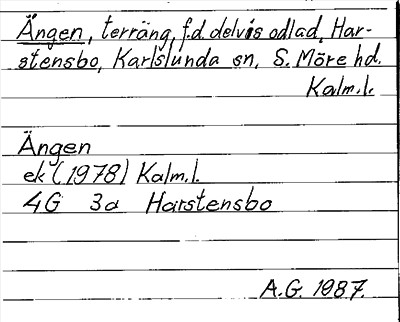 Ängen, terräng, f.d. delvis odlad, Har-
stensbo, Karlslunda sn, S. Möre hd.
Kalm.l.
Ängen
ek (1978) Kalm.l.
4G 3a Harstensbo
A.G. 1987.